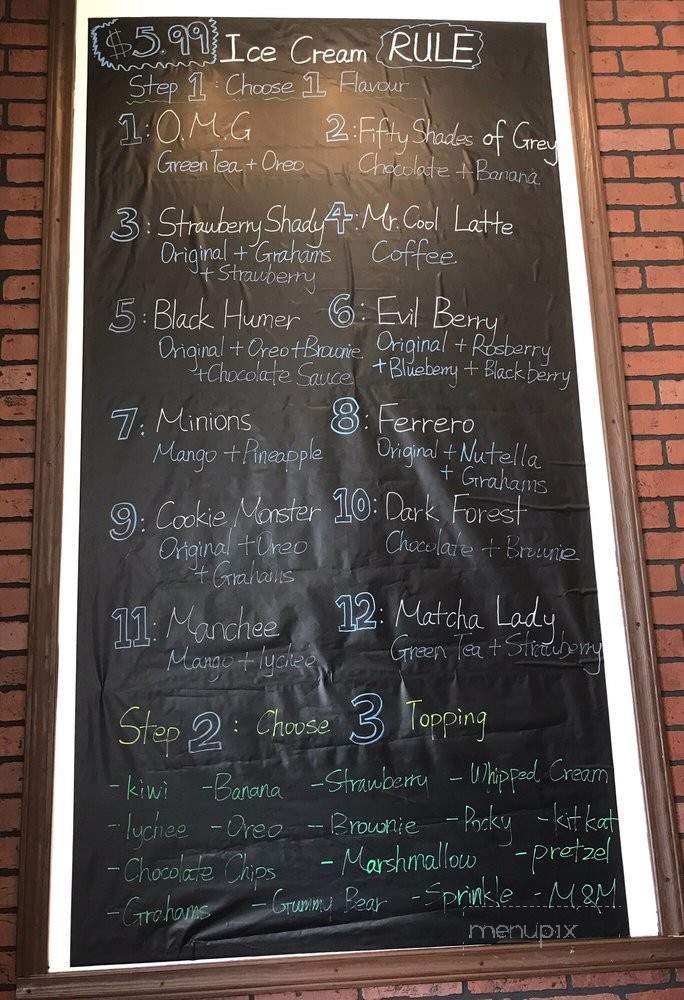 $5.99 Ice Cream RULE
Step 1: Choose 1 Flavour
1: O.M.G
Green Tea + Oreo
2: Fifty Shades of Grey
Chocolate + Banana
3: Strawberry Shady
Original + Grahams
+ Strawberry
4: Mr. Cool Latte
Coffee
5: Black Humer
Original + Oreo + Brownie
+ Chocolate Sauce
6: Evil Berry
Original + Rosberry
+ Blueberry + Black berry
7: Minions
Mango + Pineapple
8: Ferrero
Original + Nutella
+ Grahams
9: Cookie Monster
Original + Oreo
+ Grahams
10: Dark Forest
Chocolate + Brownie
11: Manchee
Mango + lychee
12: Matcha Lady
Green Tea + Strawberry
Step 2: Choose 3 Topping
- kiwi - Banana - Strawberry - Whipped Cream
- lychee - Oreo - Brownie - Pocky - kitkat
- Chocolate Chips - Marshmallow - pretzel
- Grahams - Gummy Bear - Sprinkle - M&M
menupix